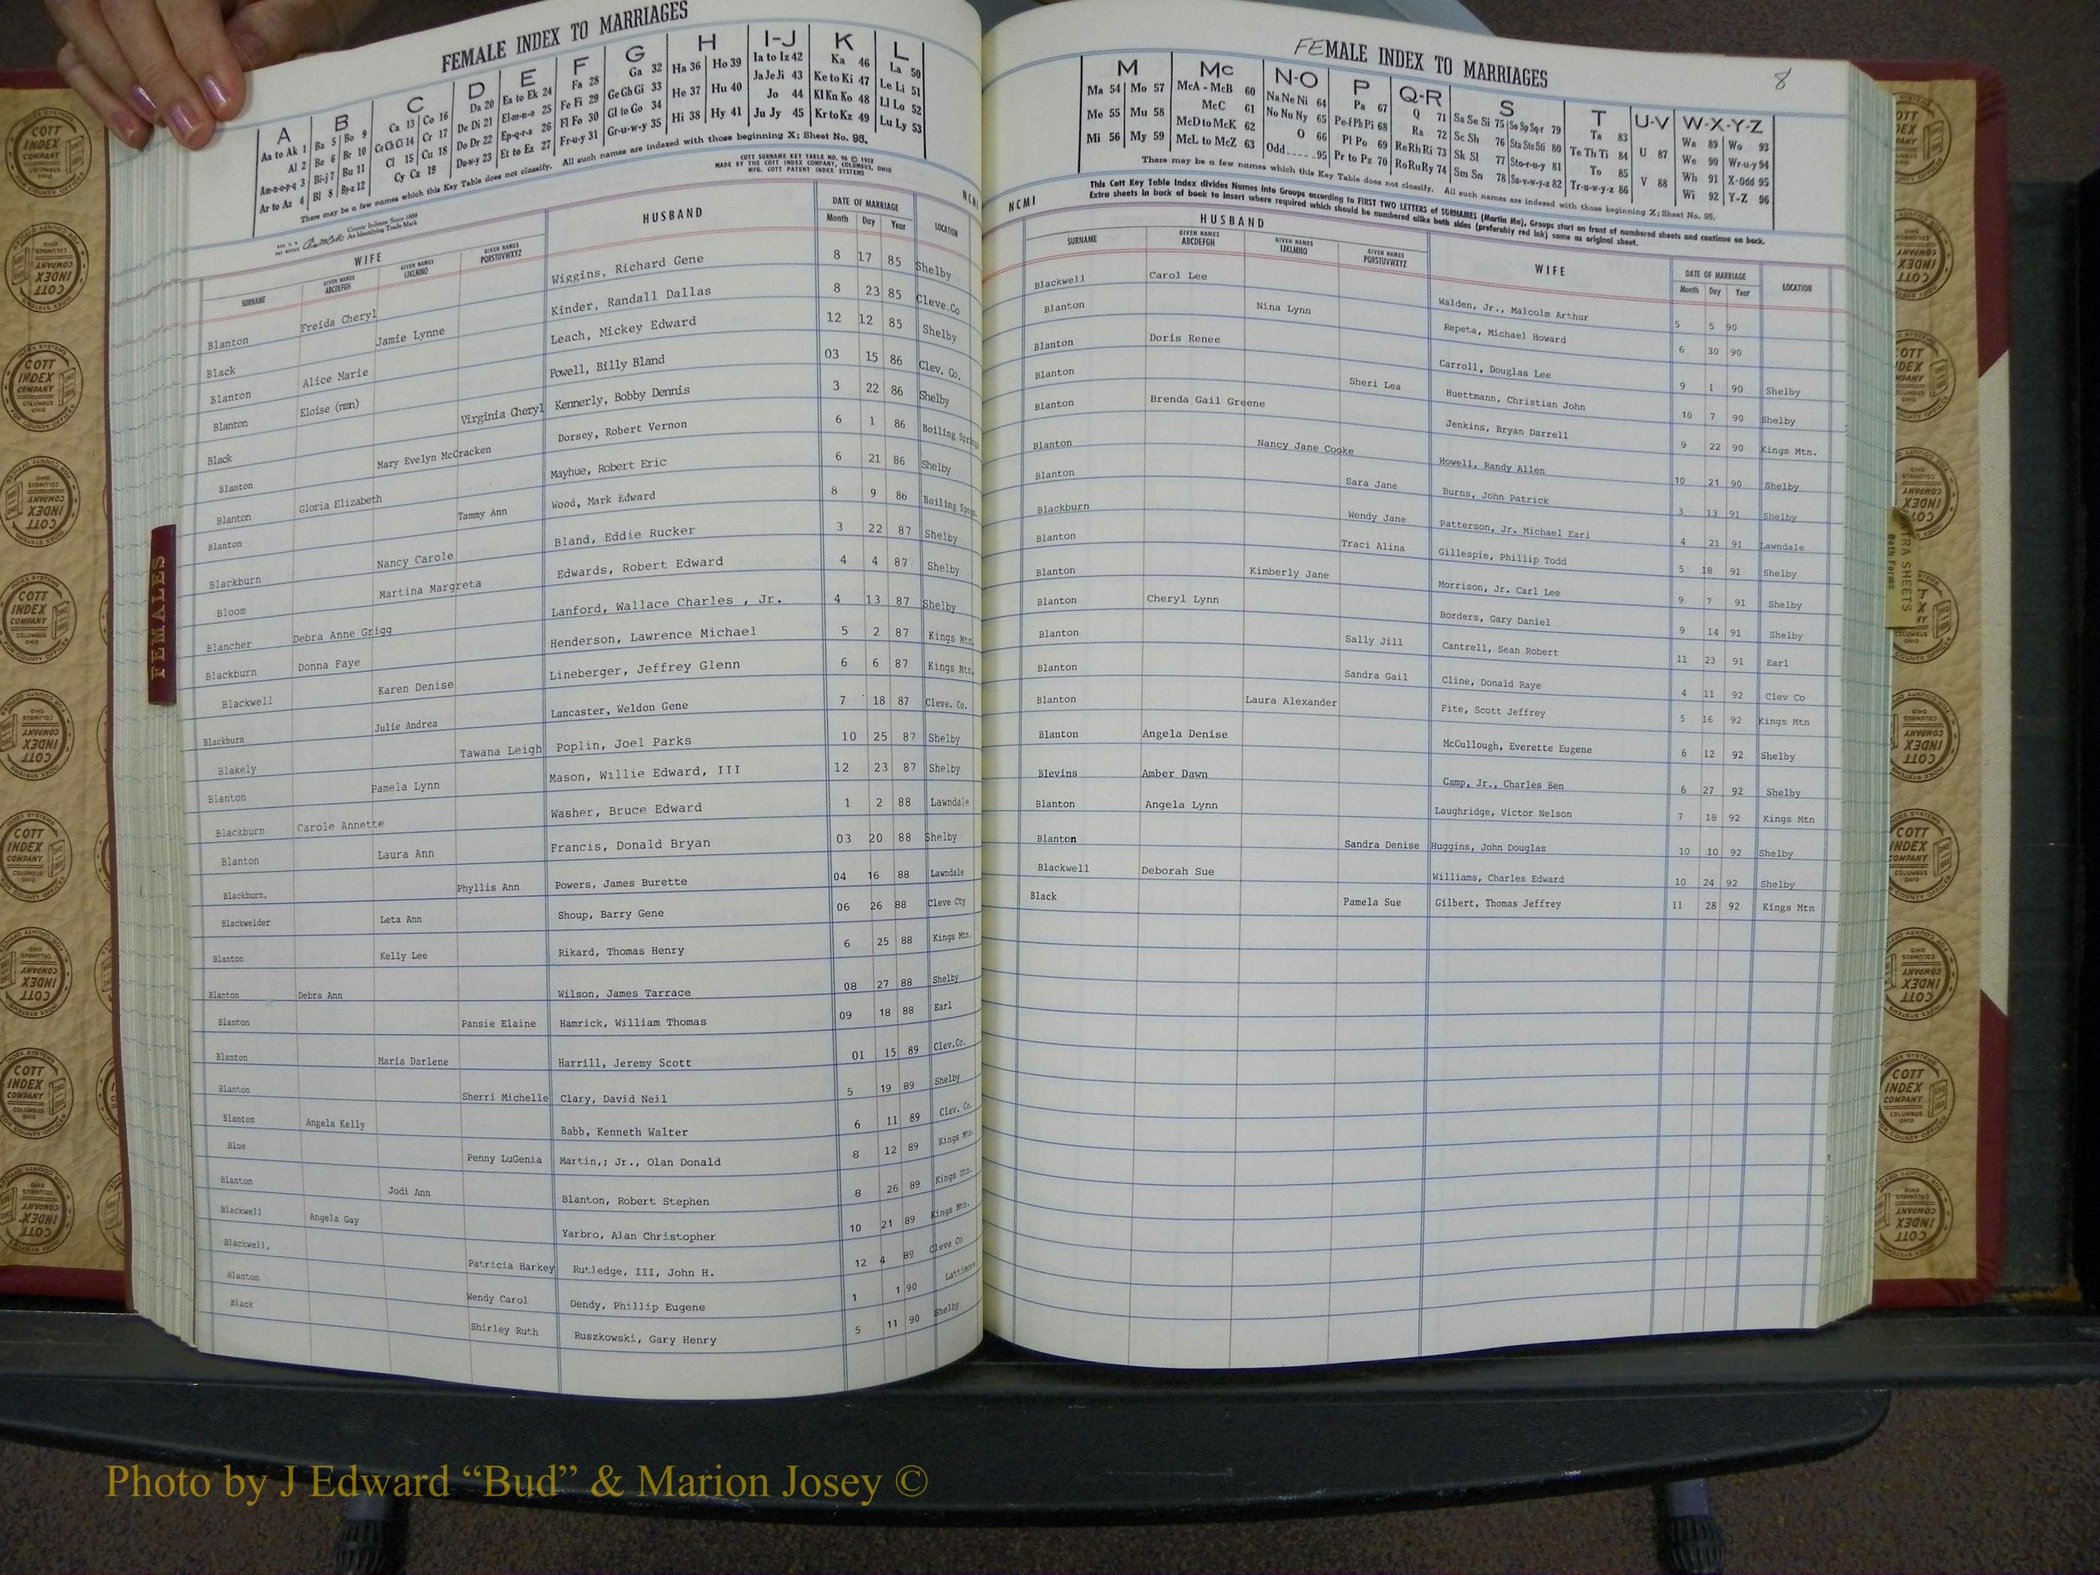 FEMALE INDEX TO MARRIAGES
A B C D E F G H I-J K L
Aa to Ak 1 Ba 5 Bo 9 Ca 13 Co 16 Da 20 Ea to Ek 24 Fa 28 Ga 32 Ha 36 Ho 39 Ia to Iz 42 Ka 46 La 50
Al 2 Be 6 Br 10 Ce Ch Ci 14 Cr 17 De Di 21 El-m-n-o 25 Fe Fi 29 Ge Gh Gi 33 He 37 Hu 40 Ja Je Ji 43 Ke to Ki 47 Le Li 51
Am-n-o-p-q 3 Bi-j 7 Bu 11 Cl 15 Cu 18 Do Dr 22 Ep-q-r-s 26 Fl Fo 30 Gl to Go 34 Hi 38 Hy 41 Jo 44 Kl Kn Ko 48 Ll Lo 52
Ar to Az 4 Bl 8 By-z 12 Cy Cz 19 Du-w-y 23 Et to Ez 27 Fr-u-y 31 Gr-u-w-y 35 Ju Jy 45 Kr to Kz 49 Lu Ly 53
There may be a few names which this Key Table does not classify. All such names are indexed with those beginning X; Sheet No. 95.
COTT SURNAME KEY TABLE NO. 96 © 1952
MADE BY THE COTT INDEX COMPANY, COLUMBUS, OHIO
MFG. COTT PATENT INDEX SYSTEMS
County Indexes Since 1888
An Identifying Trade Mark
NCMI
WIFE HUSBAND DATE OF MARRIAGE LOCATION
SURNAME GIVEN NAMES ABCDEFGH GIVEN NAMES IJKLMNO GIVEN NAMES PQRSTUVWXYZ Month Day Year
Blanton Freida Cheryl Wiggins, Richard Gene 8 17 85 Shelby
Black Jamie Lynne Kinder, Randall Dallas 8 23 85 Cleve.Co
Blanton Alice Marie Leach, Mickey Edward 12 12 85 Shelby
Blanton Eloise (nmn) Powell, Billy Bland 03 15 86 Clev. Co.
Black Virginia Cheryl Kennerly, Bobby Dennis 3 22 86 Shelby
Blanton Mary Evelyn McCracken Dorsey, Robert Vernon 6 1 86 Boiling Springs
Blanton Gloria Elizabeth Mayhue, Robert Eric 6 21 86 Shelby
Blanton Tammy Ann Wood, Mark Edward 8 9 86 Boiling Spgs.
Blackburn Nancy Carole Bland, Eddie Rucker 3 22 87 Shelby
Bloom Martina Margreta Edwards, Robert Edward 4 4 87 Shelby
Blancher Debra Anne Grigg Lanford, Wallace Charles , Jr. 4 13 87 Shelby
Blackburn Donna Faye Henderson, Lawrence Michael 5 2 87 Kings Mtn.
Blackwell Karen Denise Lineberger, Jeffrey Glenn 6 6 87 Kings Mtn.
Blackburn Julie Andrea Lancaster, Weldon Gene 7 18 87 Cleve. Co.
Blakely Tawana Leigh Poplin, Joel Parks 10 25 87 Shelby
Blanton Pamela Lynn Mason, Willie Edward, III 12 23 87 Shelby
Blackburn Carole Annette Washer, Bruce Edward 1 2 88 Lawndale
Blanton Laura Ann Francis, Donald Bryan 03 20 88 Shelby
Blackburn, Phyllis Ann Powers, James Burette 04 16 88 Lawndale
Blackwelder Leta Ann Shoup, Barry Gene 06 26 88 Cleve Cty
Blanton Kelly Lee Rikard, Thomas Henry 6 25 88 Kings Mtn.
Blanton Debra Ann Wilson, James Tarrace 08 27 88 Shelby
Blanton Pansie Elaine Hamrick, William Thomas 09 18 88 Earl
Blanton Maria Darlene Harrill, Jeremy Scott 01 15 89 Clev.Co.
Blanton Sherri Michelle Clary, David Neil 5 19 89 Shelby
Blanton Angela Kelly Babb, Kenneth Walter 6 11 89 Clev. Co.
Blue Penny LuGenia Martin,; Jr., Olan Donald 8 12 89 Kings Mtn.
Blanton Jodi Ann Blanton, Robert Stephen 8 26 89 Kings Mtn.
Blackwell Angela Gay Yarbro, Alan Christopher 10 21 89 Kings Mtn.
Blackwell, Patricia Harkey Rutledge, III, John H. 12 4 89 Cleve Co
Blanton Wendy Carol Dendy, Phillip Eugene 1 1 90 Lattimore
Black Shirley Ruth Ruszkowski, Gary Henry 5 11 90 Shelby
FEMALES
FEMALE INDEX TO MARRIAGES
8
M Mc N-O P Q-R S T U-V W-X-Y-Z
Ma 54 Mo 57 McA - McB 60 Na Ne Ni 64 Pa 67 Q 71 Sa Se Si 75 So Sp Sq-r 79 Ta 83 U 87 Wa 89 Wo 93
Me 55 Mu 58 McC 61 No Nu Ny 65 Pe-f Ph Pi 68 Ra 72 Sc Sh 76 Sta Ste Sti 80 Te Th Ti 84 We 90 Wr-u-y 94
Mi 56 My 59 McD to McK 62 O 66 Pl Po 69 Re Rh Ri 73 Sk Sl 77 Sto-r-u-y 81 To 85 V 88 Wh 91 X-Odd 95
McL to McZ 63 Odd 95 Pr to Pz 70 Ro Ru Ry 74 Sm Sn 78 Su-v-w-y-z 82 Tr-u-w-y-z 86 Wi 92 Y-Z 96
There may be a few names which this Key Table does not classify. All such names are indexed with those beginning X; Sheet No. 95.
This Cott Key Table Index divides Names into Groups according to FIRST TWO LETTERS of SURNAMES (Martin Ma), Groups start on front of numbered sheets and continue on back.
Extra sheets in back of book to insert where required which should be numbered alike both sides (preferably red ink) same as original sheet.
NCMI
HUSBAND WIFE DATE OF MARRIAGE LOCATION
SURNAME GIVEN NAMES ABCDEFGH GIVEN NAMES IJKLMNO GIVEN NAMES PQRSTUVWXYZ Month Day Year
Blackwell Carol Lee Walden, Jr., Malcolm Arthur 5 5 90
Blanton Nina Lynn Repeta, Michael Howard 6 30 90
Blanton Doris Renee Carroll, Douglas Lee 9 1 90 Shelby
Blanton Sheri Lea Huettmann, Christian John 10 7 90 Shelby
Blanton Brenda Gail Greene Jenkins, Bryan Darrell 9 22 90 Kings Mtn.
Blanton Nancy Jane Cooke Howell, Randy Allen 10 21 90 Shelby
Blanton Sara Jane Burns, John Patrick 3 13 91 Shelby
Blackburn Wendy Jane Patterson, Jr. Michael Earl 4 21 91 Lawndale
Blanton Traci Alina Gillespie, Phillip Todd 5 18 91 Shelby
Blanton Kimberly Jane Morrison, Jr. Carl Lee 9 7 91 Shelby
Blanton Cheryl Lynn Borders, Gary Daniel 9 14 91 Shelby
Blanton Sally Jill Cantrell, Sean Robert 11 23 91 Earl
Blanton Sandra Gail Cline, Donald Raye 4 11 92 Clev Co
Blanton Laura Alexander Fite, Scott Jeffrey 5 16 92 Kings Mtn
Blanton Angela Denise McCullough, Everette Eugene 6 12 92 Shelby
Blevins Amber Dawn Camp, Jr., Charles Ben 6 27 92 Shelby
Blanton Angela Lynn Laughridge, Victor Nelson 7 18 92 Kings Mtn
Blanton Sandra Denise Huggins, John Douglas 10 10 92 Shelby
Blackwell Deborah Sue Williams, Charles Edward 10 24 92 Shelby
Black Pamela Sue Gilbert, Thomas Jeffrey 11 28 92 Kings Mtn
COTT INDEX COMPANY COLUMBUS OHIO
Photo by J Edward “Bud” & Marion Josey ©